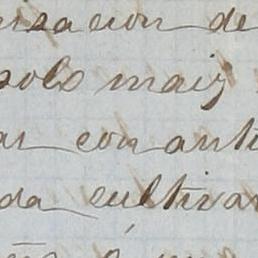 isacion de
solo mais
ar con anti
da cultivar